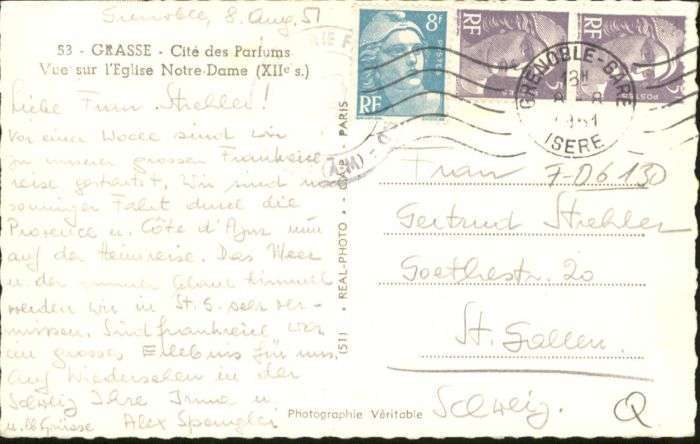 Grenoble, 8. Aug. 51
53 - GRASSE - Cité des Parfums
Vue sur l'Eglise Notre-Dame (XIIe s.)
Liebe Frau Strehler!
Vor einer Woche sind wir
zu unserer grossen Frankreich-
reise gestartet. Wir sind nach
sonniger Fahrt durch die
Provence u. Côte d'Azur nun
auf der Heimreise. Das Meer
u. der immer blaue Himmel
werden wir in St. G. sehr ver-
missen. Südfrankreich war
ein grosses Erlebnis für uns.
Auf Wiedersehen in der
Schweiz Ihre Irma u.
Alex Spengler
u. llb Grüsse
(51) • REAL-PHOTO • - PARIS
Photographie Véritable
8f
RF
RF
5f
POSTES
RF
5f
POSTES
GRENOBLE-GARE
18H
8 - 8
1951
ISERE
Frau
7-06130
Gertrud Strehler
Goethestr. 20
St. Gallen.
Schweiz.
Q